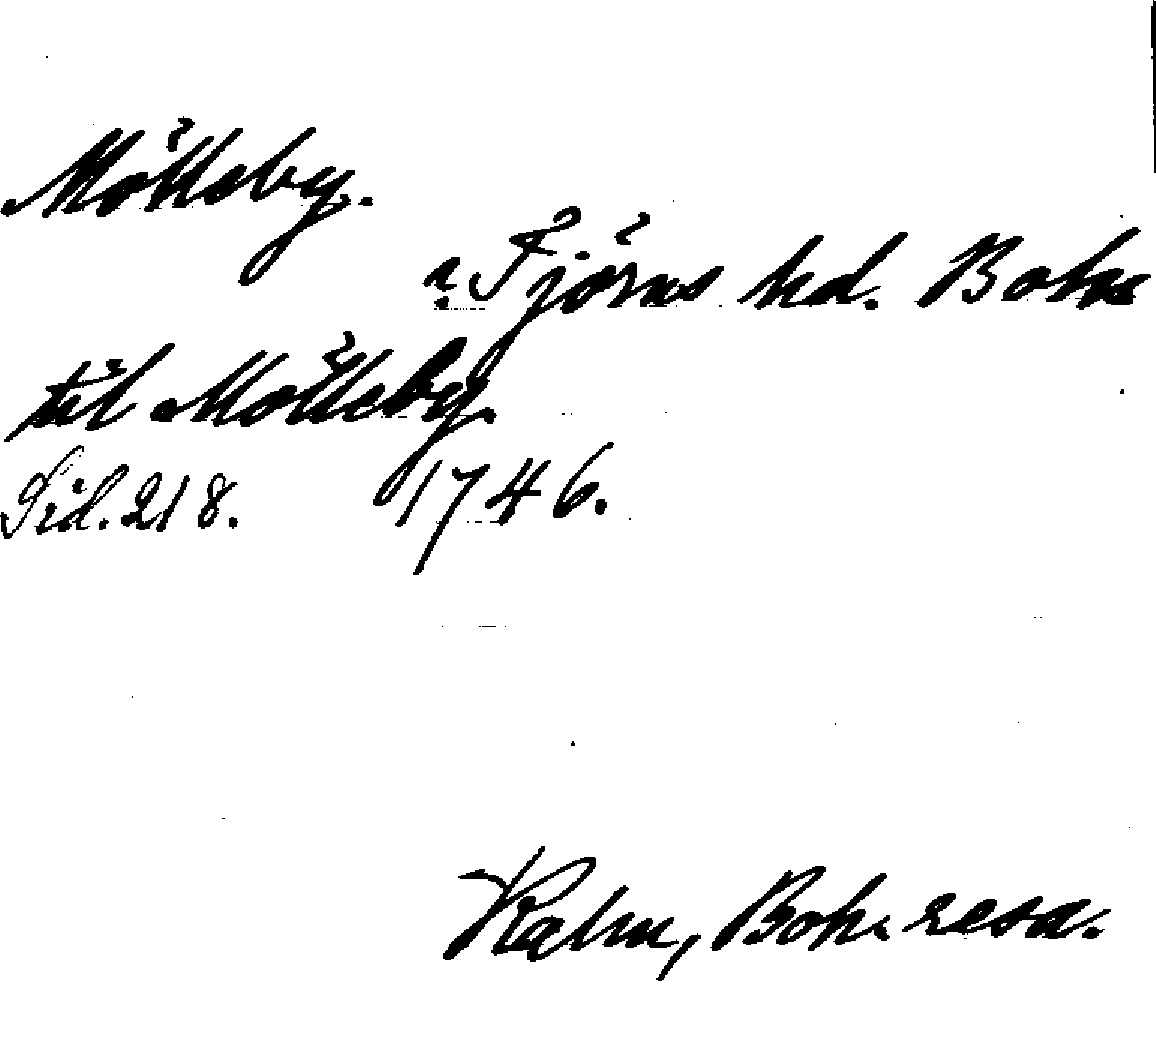 Mölleby.
? Tjörns hd. Bohs
til Mölleby
Sid. 218. 1746.
Kalm, Boh. resa.